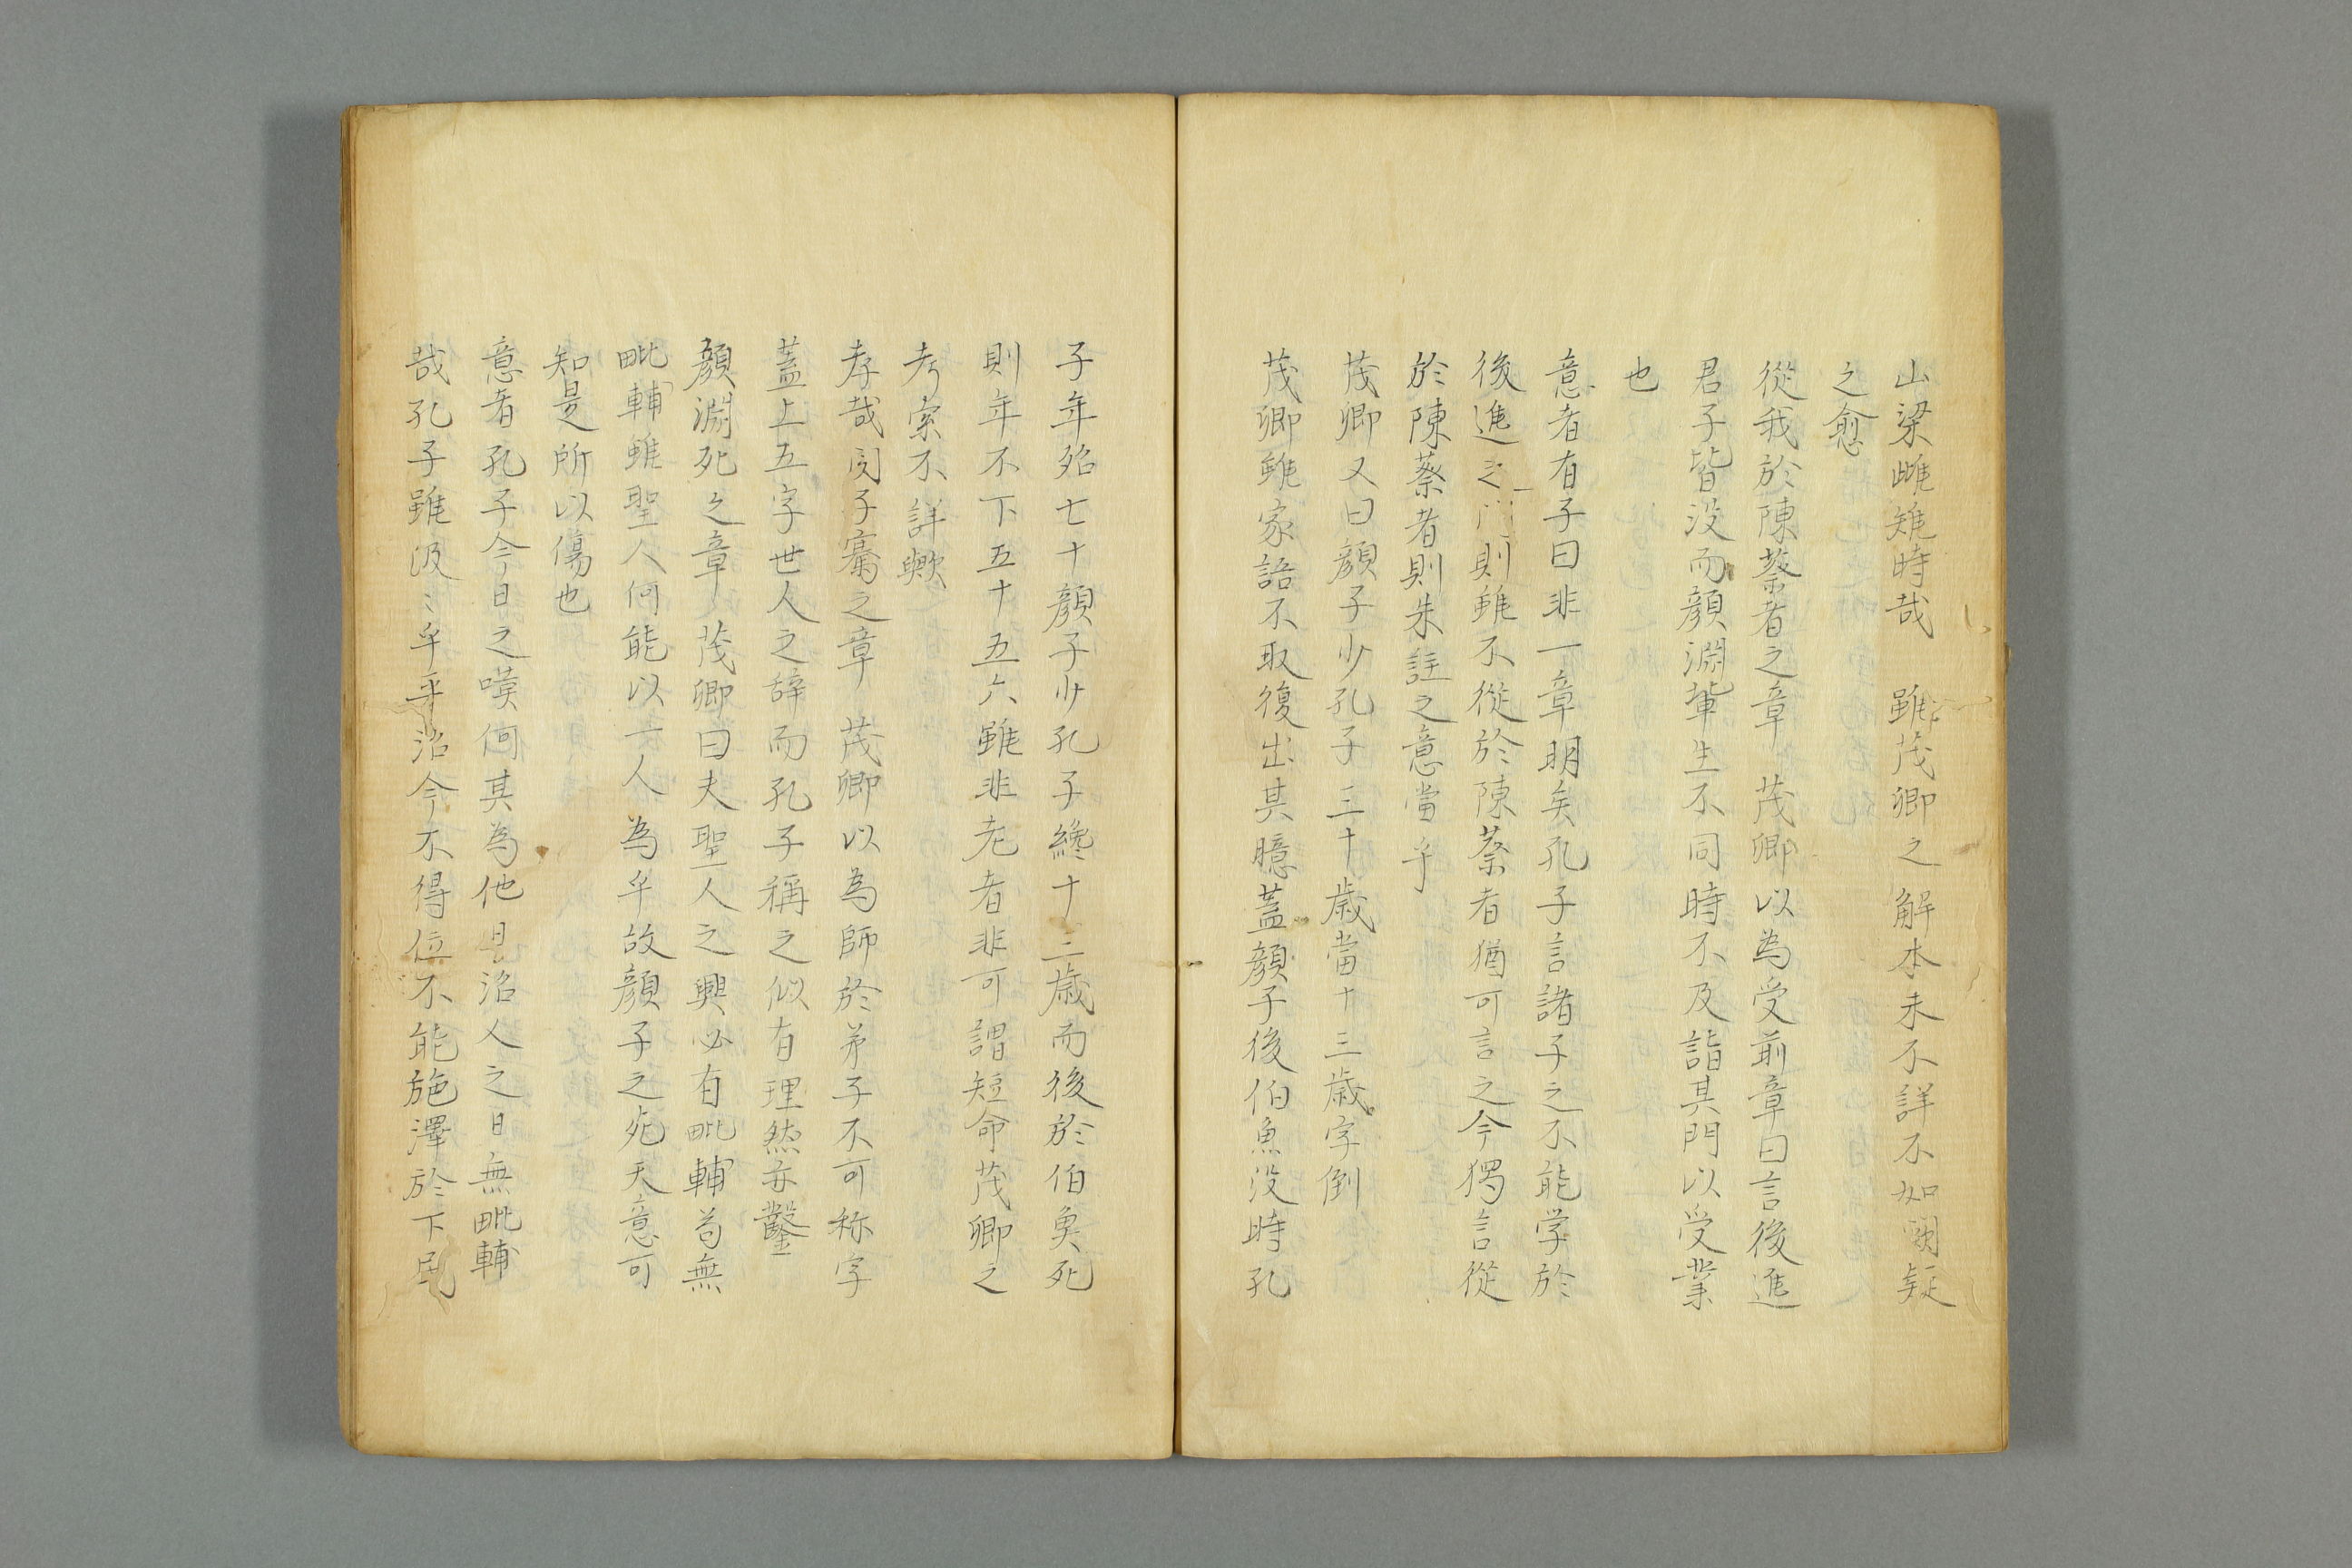 山梁雌雉時哉　雖茂卿之解本未不詳不如闕疑
之愈
從我於陳蔡者之章　茂卿以為受前章曰言後進
君子皆没而顔淵輩生不同時不及詣其門以受業
也
意者有子曰非一章明矣孔子言諸子之不能学於
後進之門則雖不從於陳蔡者猶可言之今獨言從
於陳蔡者則朱註之意當乎
茂卿又曰顔子少孔子三十歳當十三歳字倒
茂卿雖家語不取復出其臆蓋顔子後伯魚没時孔
子年殆七十顔子少孔子纔十三歳而後於伯魚死
則年不下五十五六雖非老者非可謂短命茂卿之
考索不詳歟
孝哉閔子騫之章　茂卿以為師於弟子不可称字
蓋上五字世人之辞而孔子稱之似有理然亦鑿
顔淵死之章　茂卿曰夫聖人之興必有毗輔苟無
毗輔雖聖人何能以一人為乎故顔子之死天意可
知是所以傷也
意者孔子今日之嘆何其為他日治人之日無毗輔
哉孔子雖汲〻乎平治今不得位不能施澤於下民